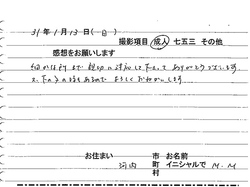 31年1月13日(日)
撮影項目 成人 七五三 その他
感想をお願いします
細かな所まで親切に対応して下さって ありがとうございます。
又、下の子の時もあるので よろしくおねがいします
お住まい 河内 市 町 村 お名前 イニシャルで M.M